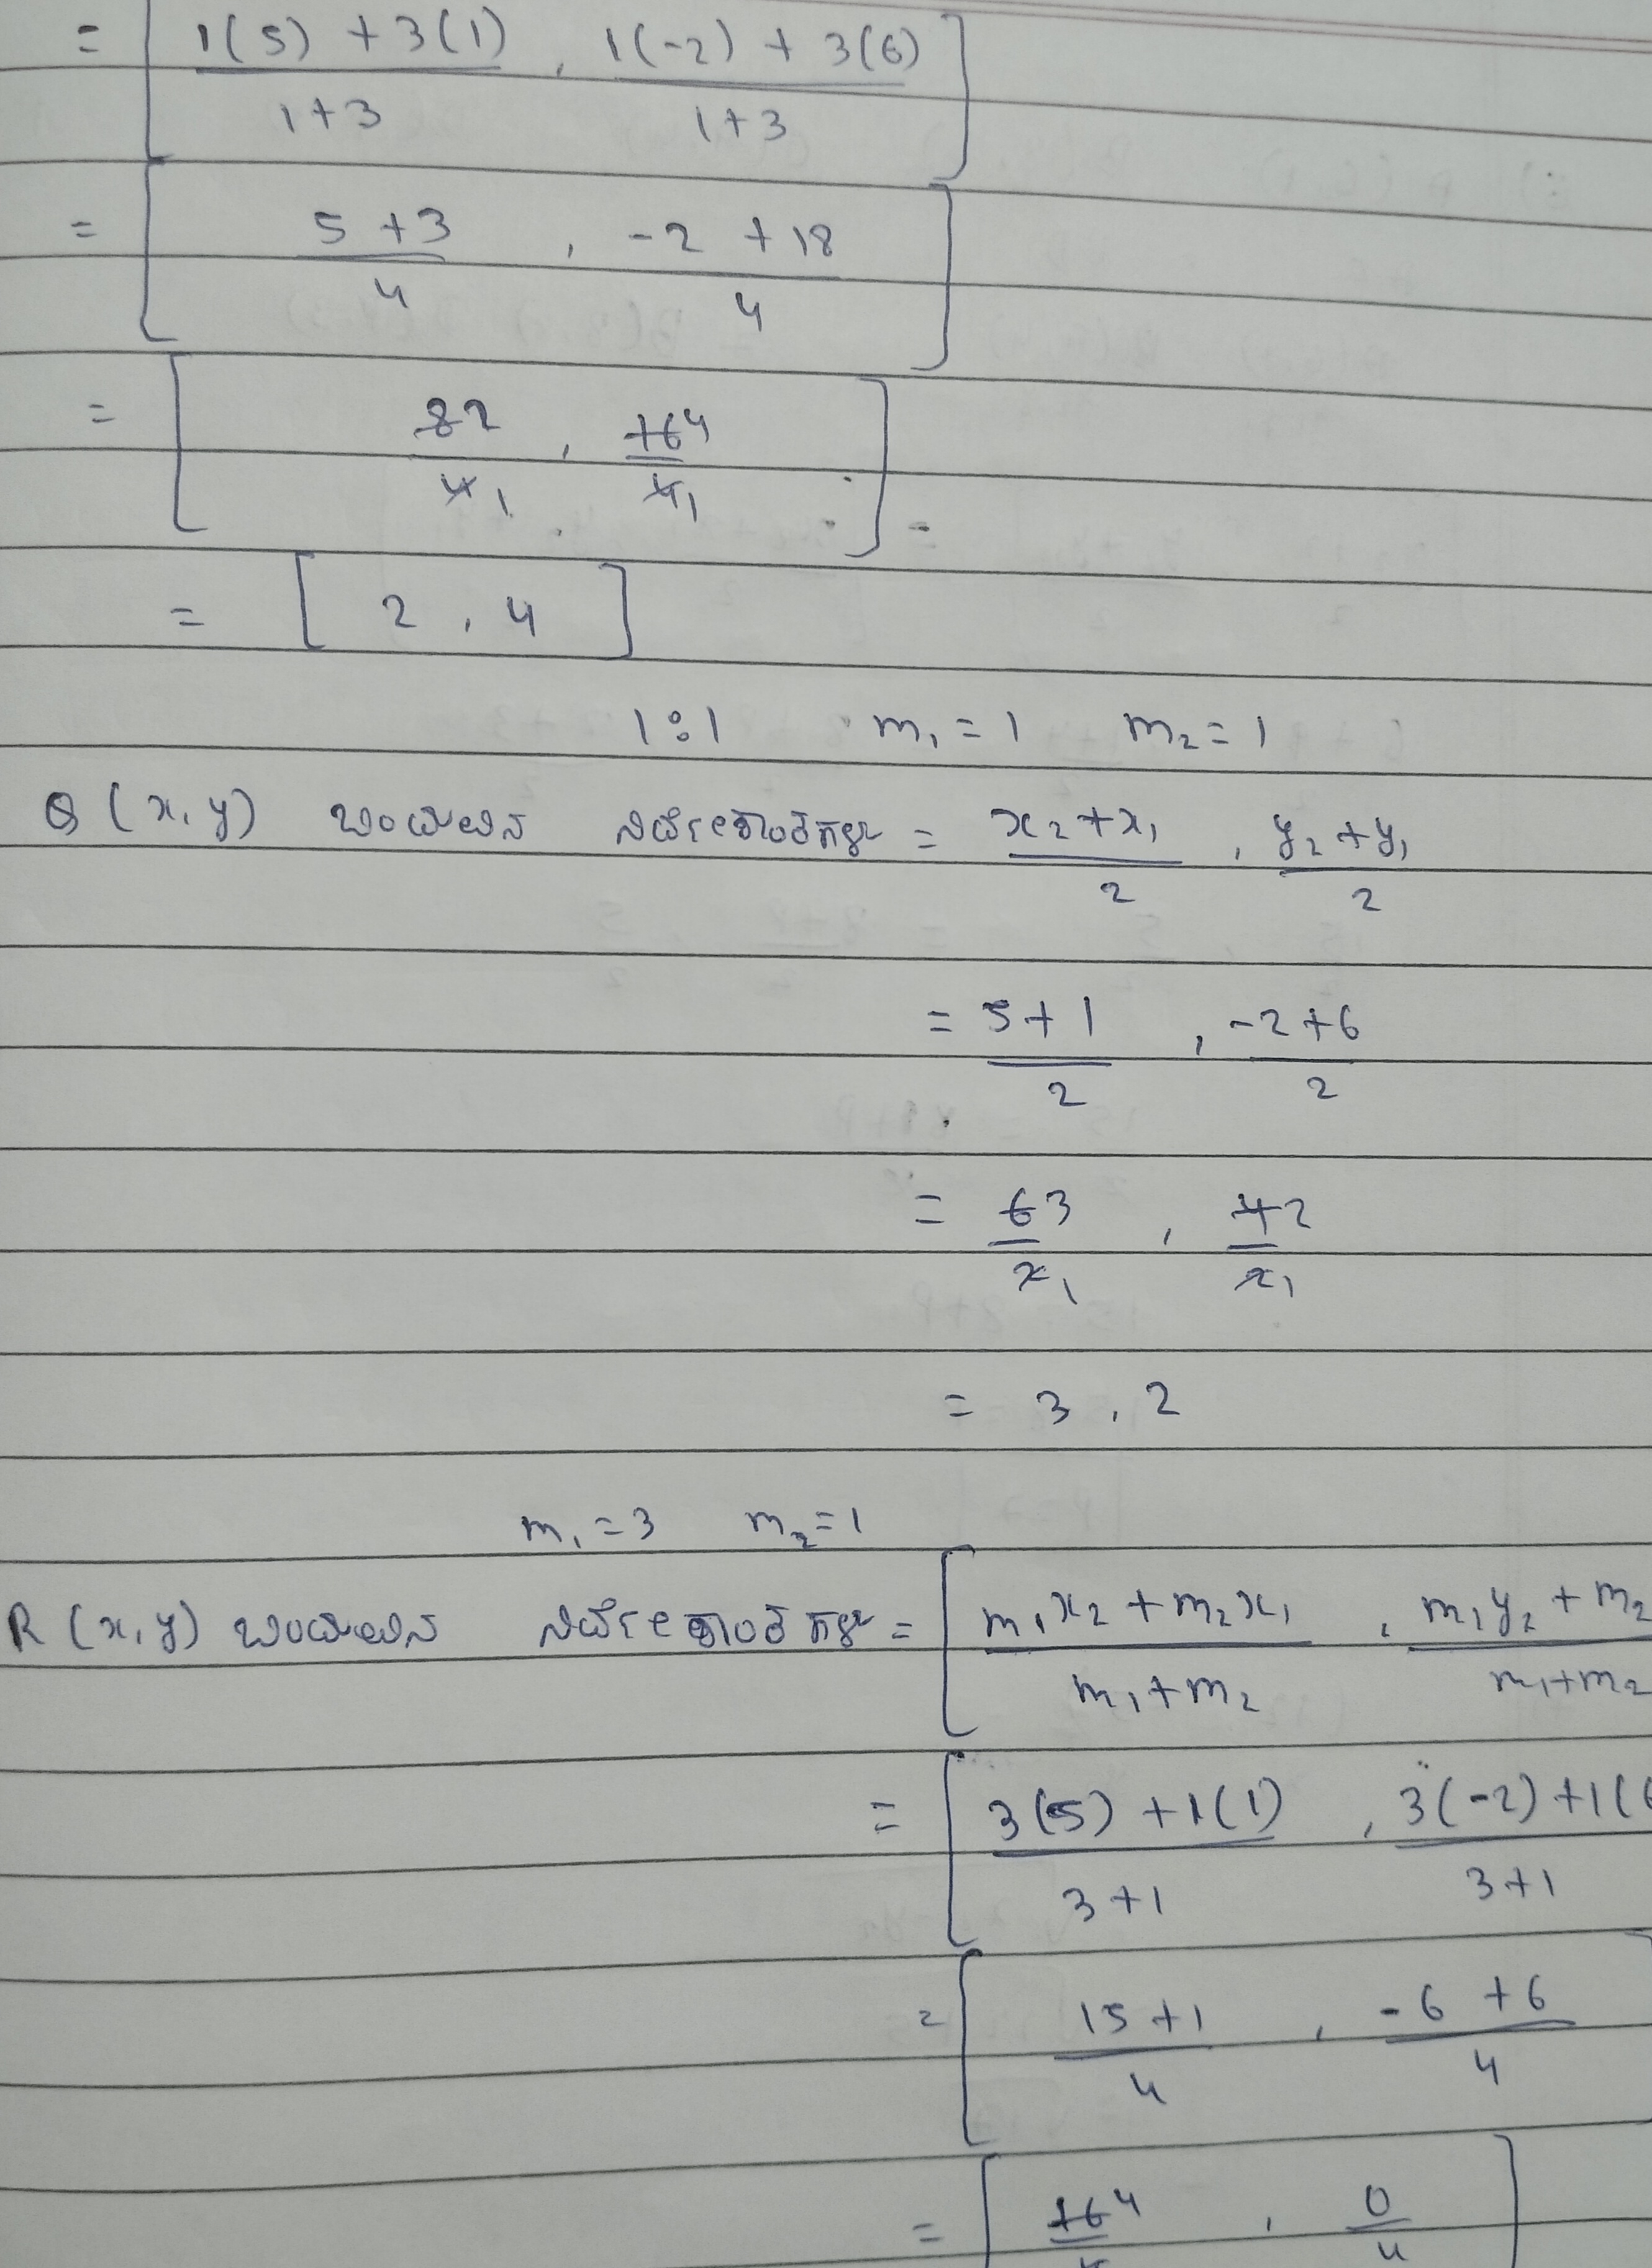 = [ 1(5) + 3(1) / 1+3 , 1(-2) + 3(6) / 1+3 ]
= [ 5+3 / 4 , -2 +18 / 4 ]
= [ 8 2 / 4 1 , 16 4 / 4 1 ] =
= [ 2 , 4 ]
1:1 m₁ = 1 m₂ = 1
Q (x, y) ಬಿಂದುವಿನ ನಿರ್ದೇಶಾಂಕಗಳು = x₂+x₁ / 2 , y₂+y₁ / 2
= 5+1 / 2 , -2+6 / 2
= 6 3 / 2 1 , 4 2 / 2 1
= 3 , 2
m₁ = 3 m₂ = 1
R (x, y) ಬಿಂದುವಿನ ನಿರ್ದೇಶಾಂಕಗಳು = [ m₁x₂ + m₂x₁ / m₁+m₂ , m₁y₂ + m₂ / m₁+m₂
= [ 3(5) + 1(1) / 3+1 , 3(-2) +1(6 / 3+1
= [ 15+1 / 4 , -6 +6 / 4 ]
= [ 16 4 / 4 , 0 / 4 ]